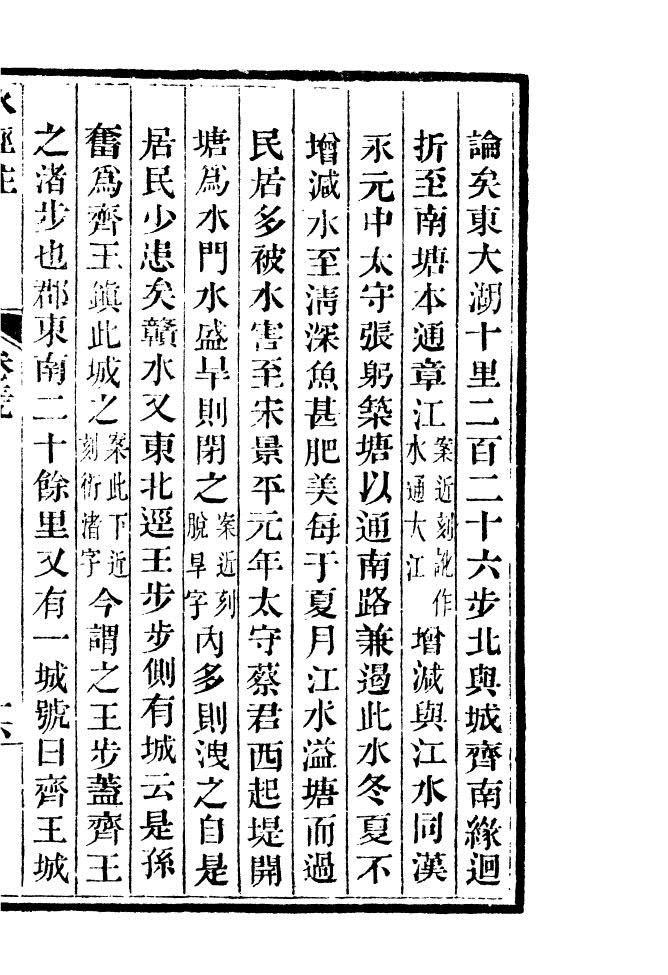 論矣東大湖十里二百二十六步北與城齊南緣迴
折至南塘本通章江案近刻訛作水通大江增減與江水同漢
永元中太守張躬築塘以通南路兼遏此水冬夏不
增減水至淸深魚甚肥美每于夏月江水溢塘而過
民居多被水害至宋景平元年太守蔡君西起堤開
塘爲水門水盛旱則閉之案近刻脫旱字內多則洩之自是
居民少患矣贛水又東北逕王步步側有城云是孫
奮爲齊王鎭此城之案此下近刻衍渚字今謂之王步蓋齊王
之渚步也郡東南二十餘里又有一城號曰齊王城
水經注